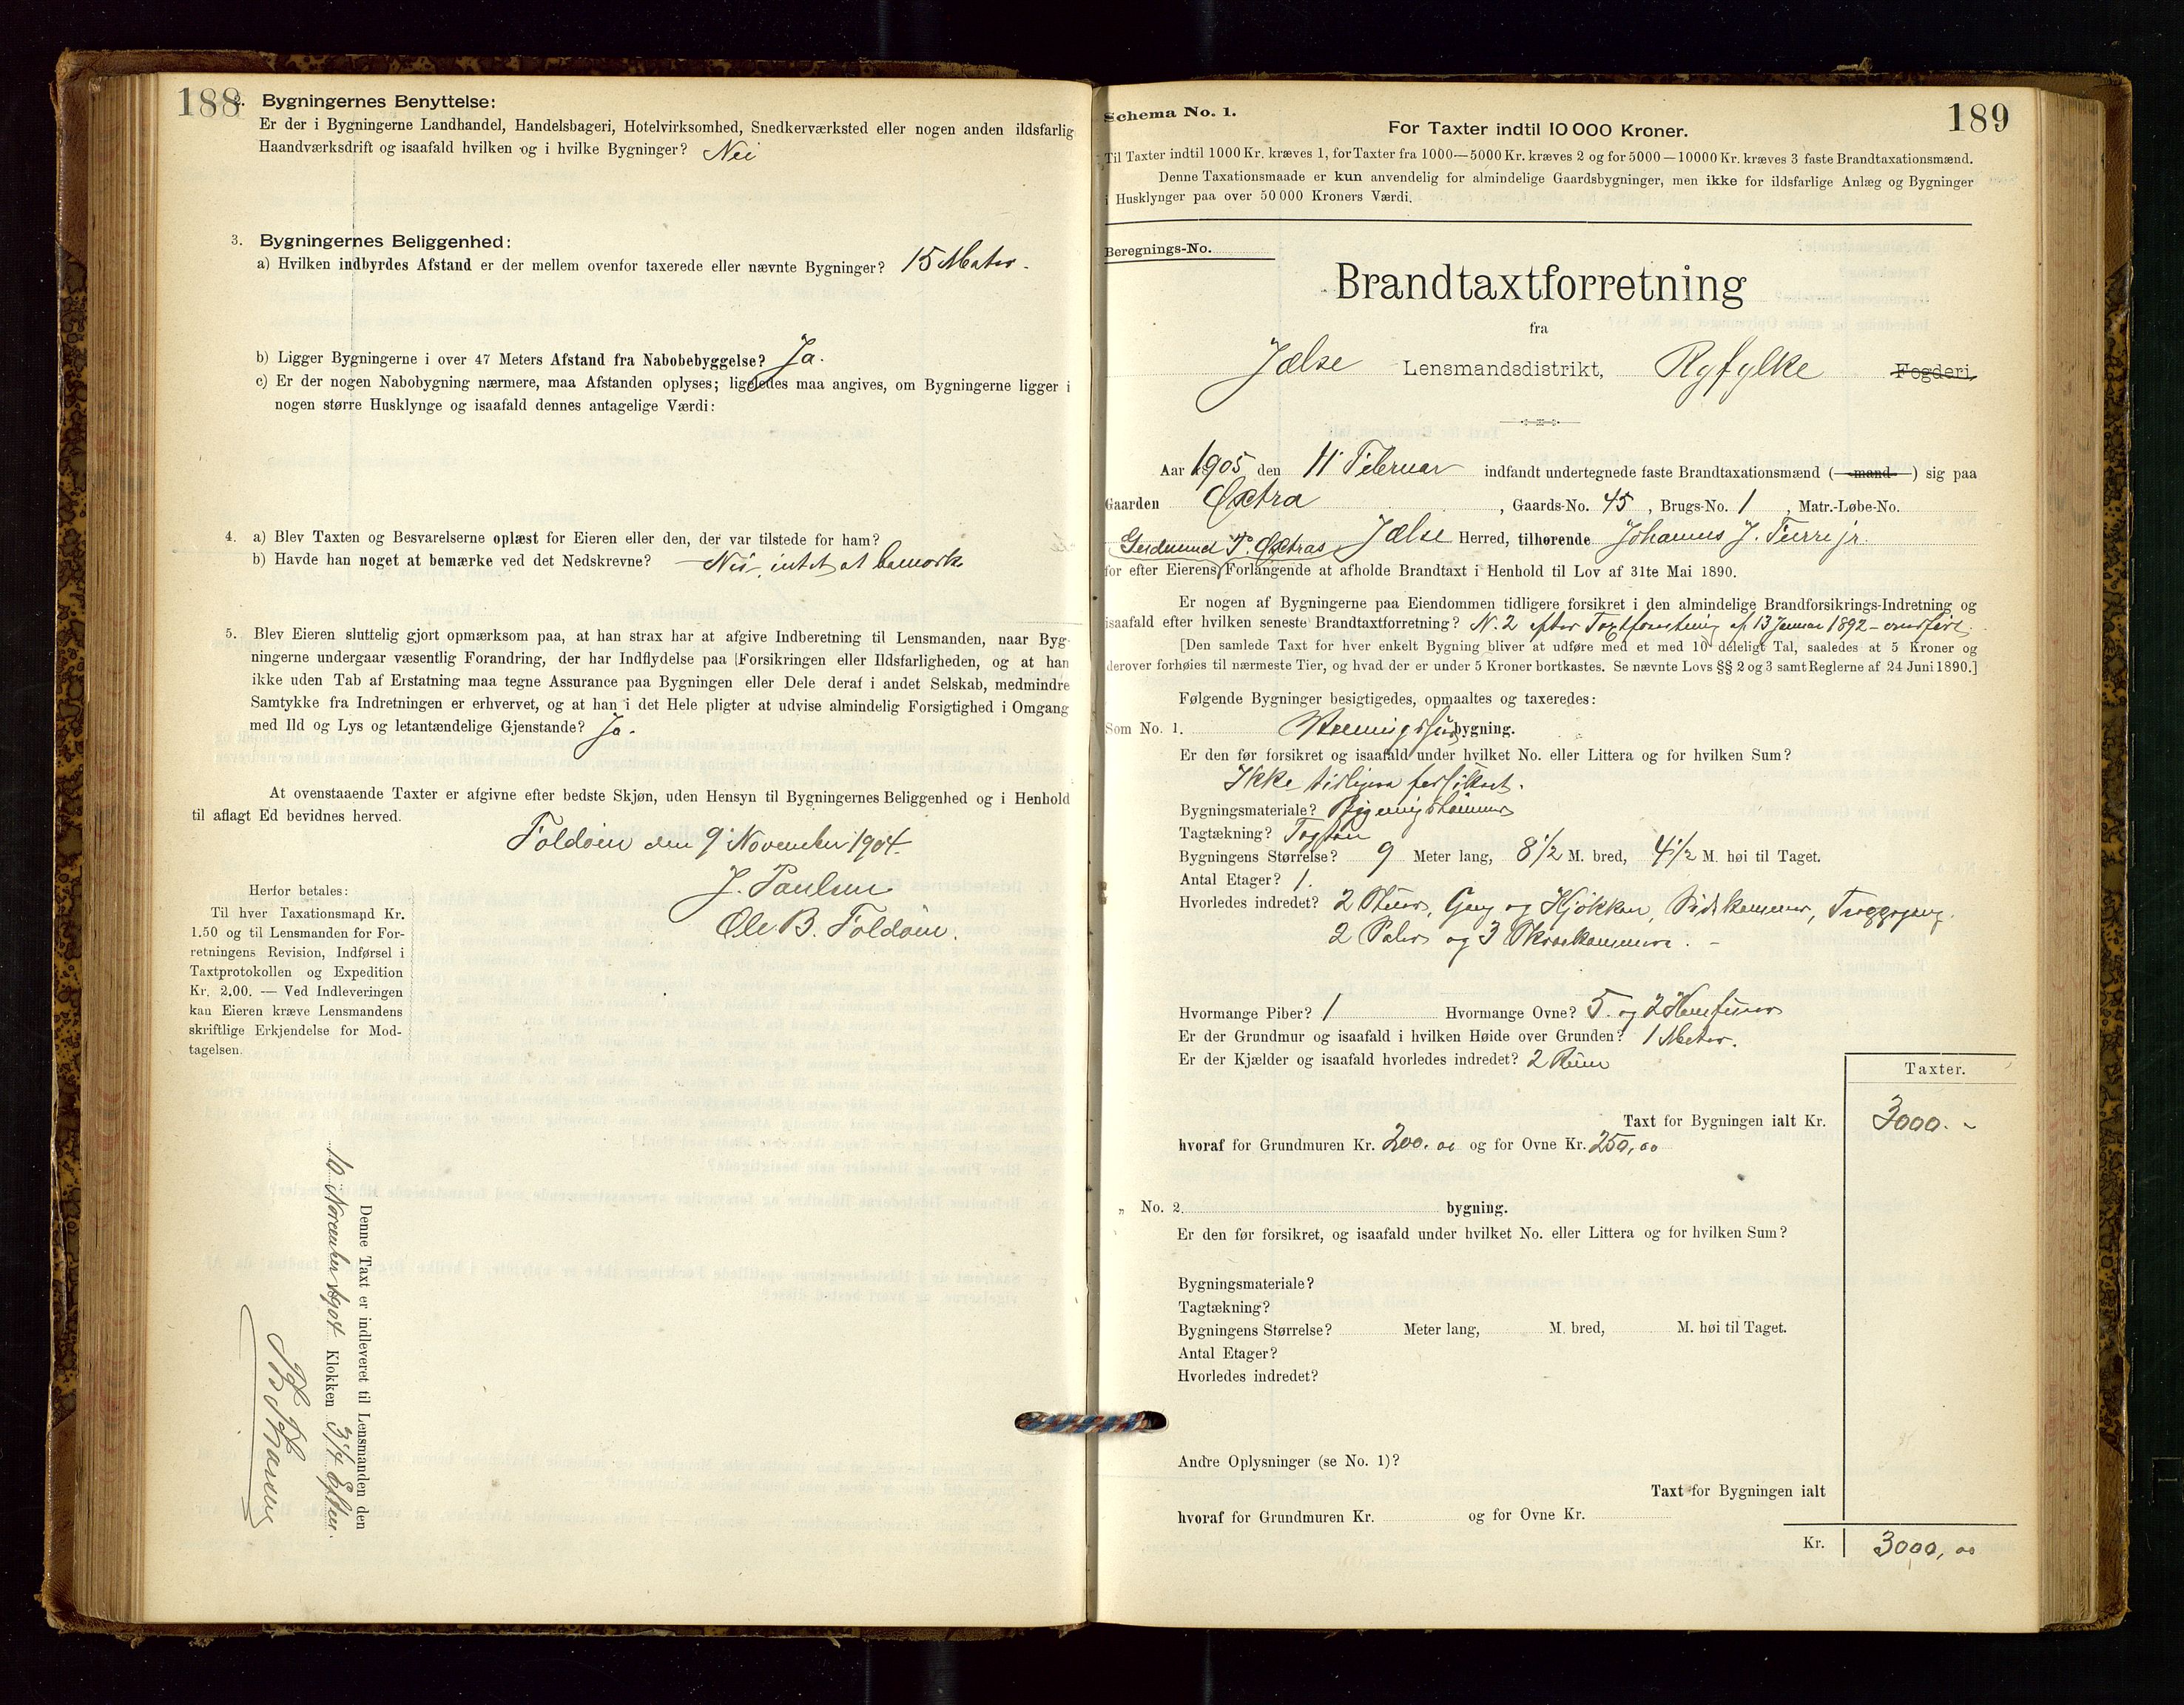 188
2. Bygningernes Benyttelse:
Er der i Bygningerne Landhandel, Handelsbageri, Hotelvirksomhed, Snedkerværksted eller nogen anden ildsfarlig
Haandværksdrift og isaafald hvilken og i hvilke Bygninger? Nei
3. Bygningernes Beliggenhed:
a) Hvilken indbyrdes Afstand er der mellem ovenfor taxerede eller nævnte Bygninger? 15 Meter.
b) Ligger Bygningerne i over 47 Meters Afstand fra Nabobebyggelse? Ja.
c) Er der nogen Nabobygning nærmere, maa Afstanden oplyses; ligeledes maa angives, om Bygningerne ligger i
nogen større Husklynge og isaafald dennes antagelige Værdi:
4. a) Blev Taxten og Besvarelserne oplæst for Eieren eller den, der var tilstede for ham?
b) Havde han noget at bemærke ved det Nedskrevne? Nei, intet at bemærke
5. Blev Eieren sluttelig gjort opmærksom paa, at han strax har at afgive Indberetning til Lensmanden, naar Byg-
ningerne undergaar væsentlig Forandring, der har Indflydelse paa Forsikringen eller Ildsfarligheden, og at han
ikke uden Tab af Erstatning maa tegne Assurance paa Bygningen eller Dele deraf i andet Selskab, medmindre
Samtykke fra Indretningen er erhvervet, og at han i det Hele pligter at udvise almindelig Forsigtighed i Omgang
med Ild og Lys og letantændelige Gjenstande? Ja.
At ovenstaaende Taxter er afgivne efter bedste Skjøn, uden Hensyn til Bygningernes Beliggenhed og i Henhold
til aflagt Ed bevidnes herved.
Foldøen den 9 November 1904.
J. Paulsen
Ole B. Foldøen.
Herfor betales:
Til hver Taxationsmand Kr.
1.50 og til Lensmanden for For-
retningens Revision, Indførsel i
Taxtprotokollen og Expedition
Kr. 2.00. — Ved Indleveringen
kan Eieren kræve Lensmandens
skriftlige Erkjendelse for Mod-
tagelsen.
Denne Taxt er indleveret til Lensmanden den
10 November 1904 Klokken 3 1/4 Efterm.
189
Schema No. 1.
For Taxter indtil 10 000 Kroner.
Til Taxter indtil 1000 Kr. kræves 1, for Taxter fra 1000—5000 Kr. kræves 2 og for 5000—10000 Kr. kræves 3 faste Brandtaxationsmænd.
Denne Taxationsmaade er kun anvendelig for almindelige Gaardsbygninger, men ikke for ildsfarlige Anlæg og Bygninger
i Husklynger paa over 50 000 Kroners Værdi.
Beregnings-No.
Brandtaxtforretning
fra
Jælse Lensmandsdistrikt, Ryfylke Fogderi.
Aar 1905 den 11 Februar indfandt undertegnede faste Brandtaxationsmænd (mand) sig paa
Gaarden Øxtra, Gaards-No. 45, Brugs-No. 1, Matr.-Løbe-No.
Jælse Herred, tilhørende Johannes J.
Gudmund T. Øxtras
for efter Eierens Forlangende at afholde Brandtaxt i Henhold til Lov af 31te Mai 1890.
Er nogen af Bygningerne paa Eiendommen tidligere forsikret i den almindelige Brandforsikrings-Indretning og
isaafald efter hvilken seneste Brandtaxtforretning? N. 2 efter Taxtforretning af 13 Januar 1892
[Den samlede Taxt for hver enkelt Bygning bliver at udføre med et med 10 deleligt Tal, saaledes at 5 Kroner og
derover forhøies til nærmeste Tier, og hvad der er under 5 Kroner bortkastes. Se nævnte Lovs §§ 2 og 3 samt Reglerne af 24 Juni 1890.]
Følgende Bygninger besigtigedes, opmaaltes og taxeredes:
Som No. 1. Vaaningshusbygning.
Er den før forsikret og isaafald under hvilket No. eller Littera og for hvilken Sum?
Ikke tidligere forsikret.
Bygningsmateriale? Bygningstømmer
Tagtækning? Tagsten
Bygningens Størrelse? 9 Meter lang, 8 1/2 M. bred, 4 1/2 M. høi til Taget.
Antal Etager? 1.
Hvorledes indredet? 2 Stuer, Gang og Kjøkken, Sidekammer, Trappegang,
2 Saler og 3 Skraakammere. -
Hvormange Piber? 1 Hvormange Ovne? 5. og 2
Er der Grundmur og isaafald i hvilken Høide over Grunden? 1 Meter.
Er der Kjælder og isaafald hvorledes indredet? 2 Rum
Taxter.
Taxt for Bygningen ialt Kr. 3000. -
hvoraf for Grundmuren Kr. 200.00 og for Ovne Kr. 250,00
" No. 2. bygning.
Er den før forsikret, og isaafald under hvilket No. eller Littera og for hvilken Sum?
Bygningsmateriale?
Tagtækning?
Bygningens Størrelse? Meter lang, M. bred, M. høi til Taget.
Antal Etager?
Hvorledes indredet?
Andre Oplysninger (se No. 1)?
Taxt for Bygningen ialt
hvoraf for Grundmuren Kr. og for Ovne Kr.
Kr. 3000,00